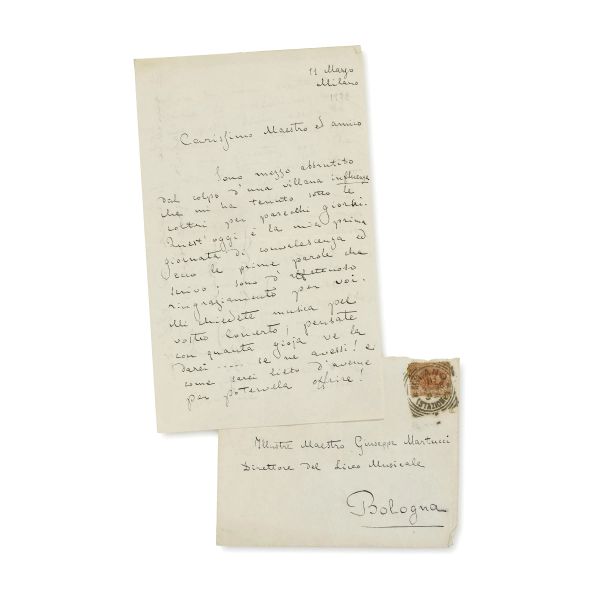 11 Marzo
Milano
Carissimo Maestro ed amico
Sono mezzo abbrutito
dal colpo d'una villana influenza
che mi ha tenuto sotto le
coltri per parecchi giorni.
Quest'oggi è la mia prima
giornata di convalescenza ed
ecco le prime parole che
scrivo; sono d'affettuoso
ringraziamento per voi.
Mi chiedete musica pel
vostro Concerto; pensate
con quanta gioja ve la
darei ..... se ne avessi! e
come sarei lieto d'averne
per potervela offrire!
Illustre Maestro Giuseppe Martucci
Direttore del Liceo Musicale
Bologna